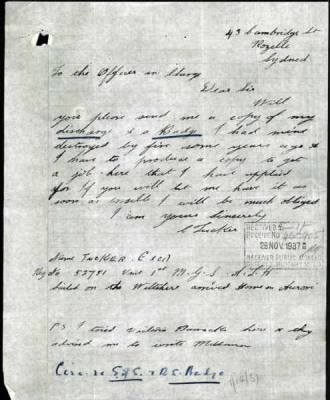 43 Cambridge St
Rozelle
Sydney
To the Officer in Charge
Dear Sir
Will
you please send me a copy of my
discharge & a Badge I had mine
destroyed by fire some years ago &
I have to produce a copy to get
a job here that I have applied
for If you will let me have it as
soon as possible I will be much obliged
I am yours Sincerely
C Tucker
RECEIVED
29 NOV. 1937
Name TUCKER Cecil
Reg No Unit 1st M.G.S. A.I.F.
Sailed on the Wiltshire arrived Home on
PS I tried Victoria Barracks here & they
advised me to write Melbourne